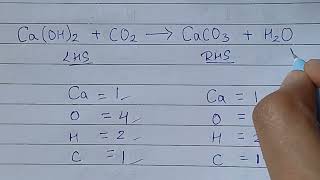 Ca(OH)₂ + CO₂ → CaCO₃ + H₂O
LHS RHS
Ca = 1 Ca = 1
O = 4 O =
H = 2 H =
C = 1 C =